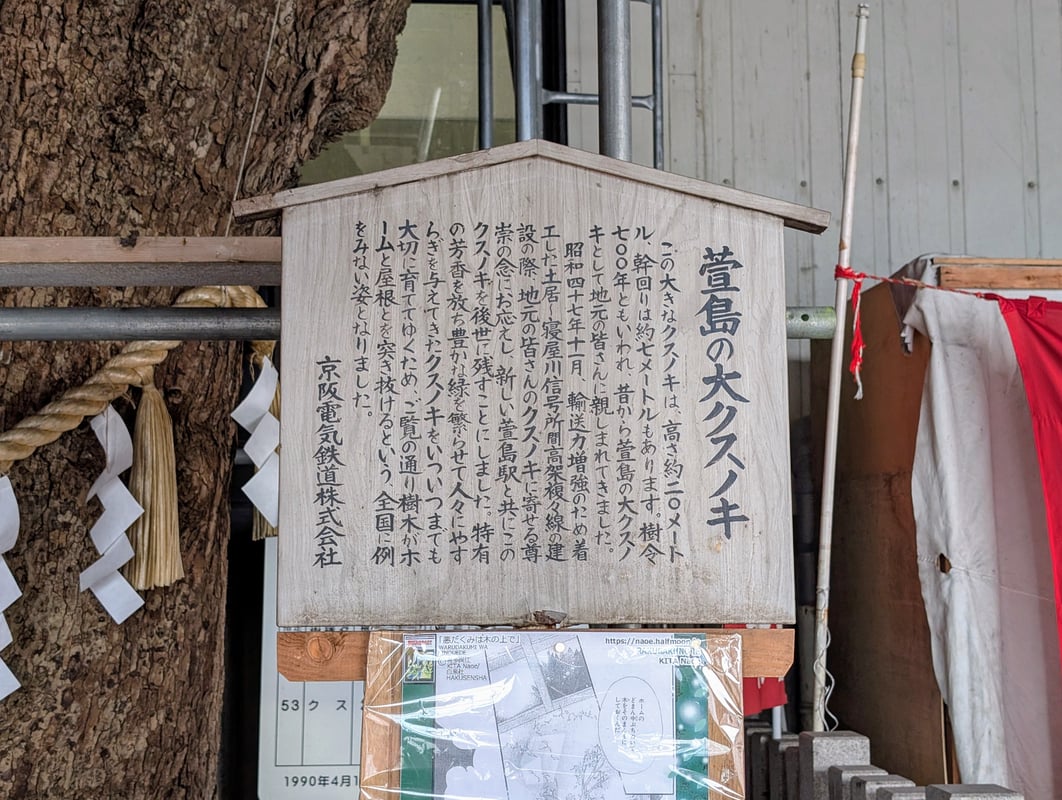 萱島の大クスノキ
この大きなクスノキは、高さ約二〇メート
ル、幹回りは約七メートルもあります。樹令
七〇〇年ともいわれ、昔から萱島の大クスノ
キとして地元の皆さんに親しまれてきました。
昭和四十七年十一月、輸送力増強のため着
工した土居～寝屋川信号所間高架複々線の建
設の際、地元の皆さんのクスノキに寄せる尊
崇の念にお応えし、新しい萱島駅と共にこの
クスノキを後世に残すことにしました。特有
の芳香を放ち豊かな緑を繁らせて人々にやす
らぎを与えてきたクスノキをいついつまでも
大切に育ててゆくため、ご覧の通り樹木がホ
ームと屋根とを突き抜けるという、全国に例
をみない姿となりました。
京阪電気鉄道株式会社
「悪だくみは木の上で」
WARUDAKUMI WA
KITA Naoe/
白泉社
HAKUSENSHA
https://naoe.halfmoon
ホームの
どまん中ぶちぬいて
木をそのままに
しておくんだ
53 クス
1990年4月1